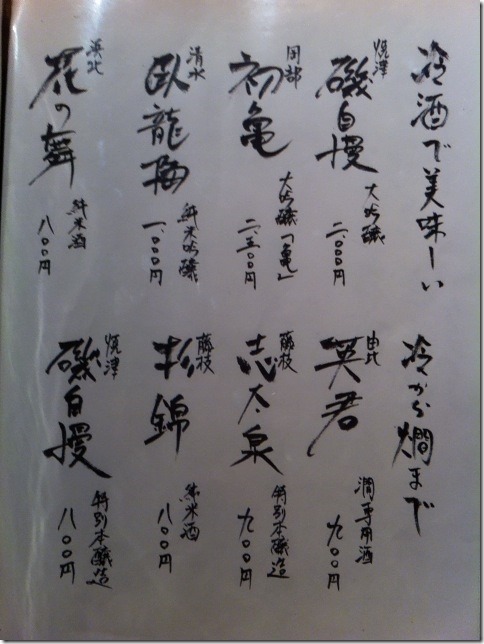 冷酒で美味しい
焼津
磯自慢
大吟醸
二、〇〇〇円
岡部
初亀
大吟醸「亀」
二、三〇〇円
清水
臥龍梅
純米吟醸
一、〇〇〇円
浜北
花の舞
純米酒
八〇〇円
冷から燗まで
由比
英君
燗専用酒
九〇〇円
藤枝
志太泉
特別本醸造
九〇〇円
藤枝
杉錦
純米酒
八〇〇円
焼津
磯自慢
特別本醸造
八〇〇円